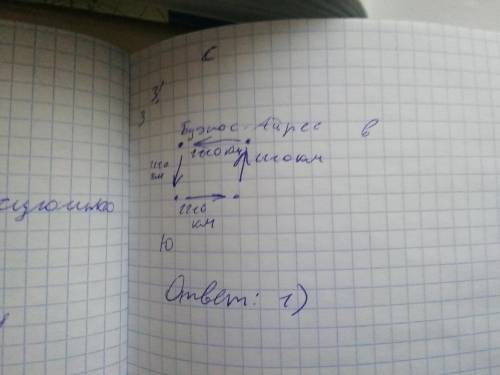 С
3)
З
Буэнос-Айрес
В
1110 км
1110 км
1110
км
1110
км
Ю
Ответ: 1)